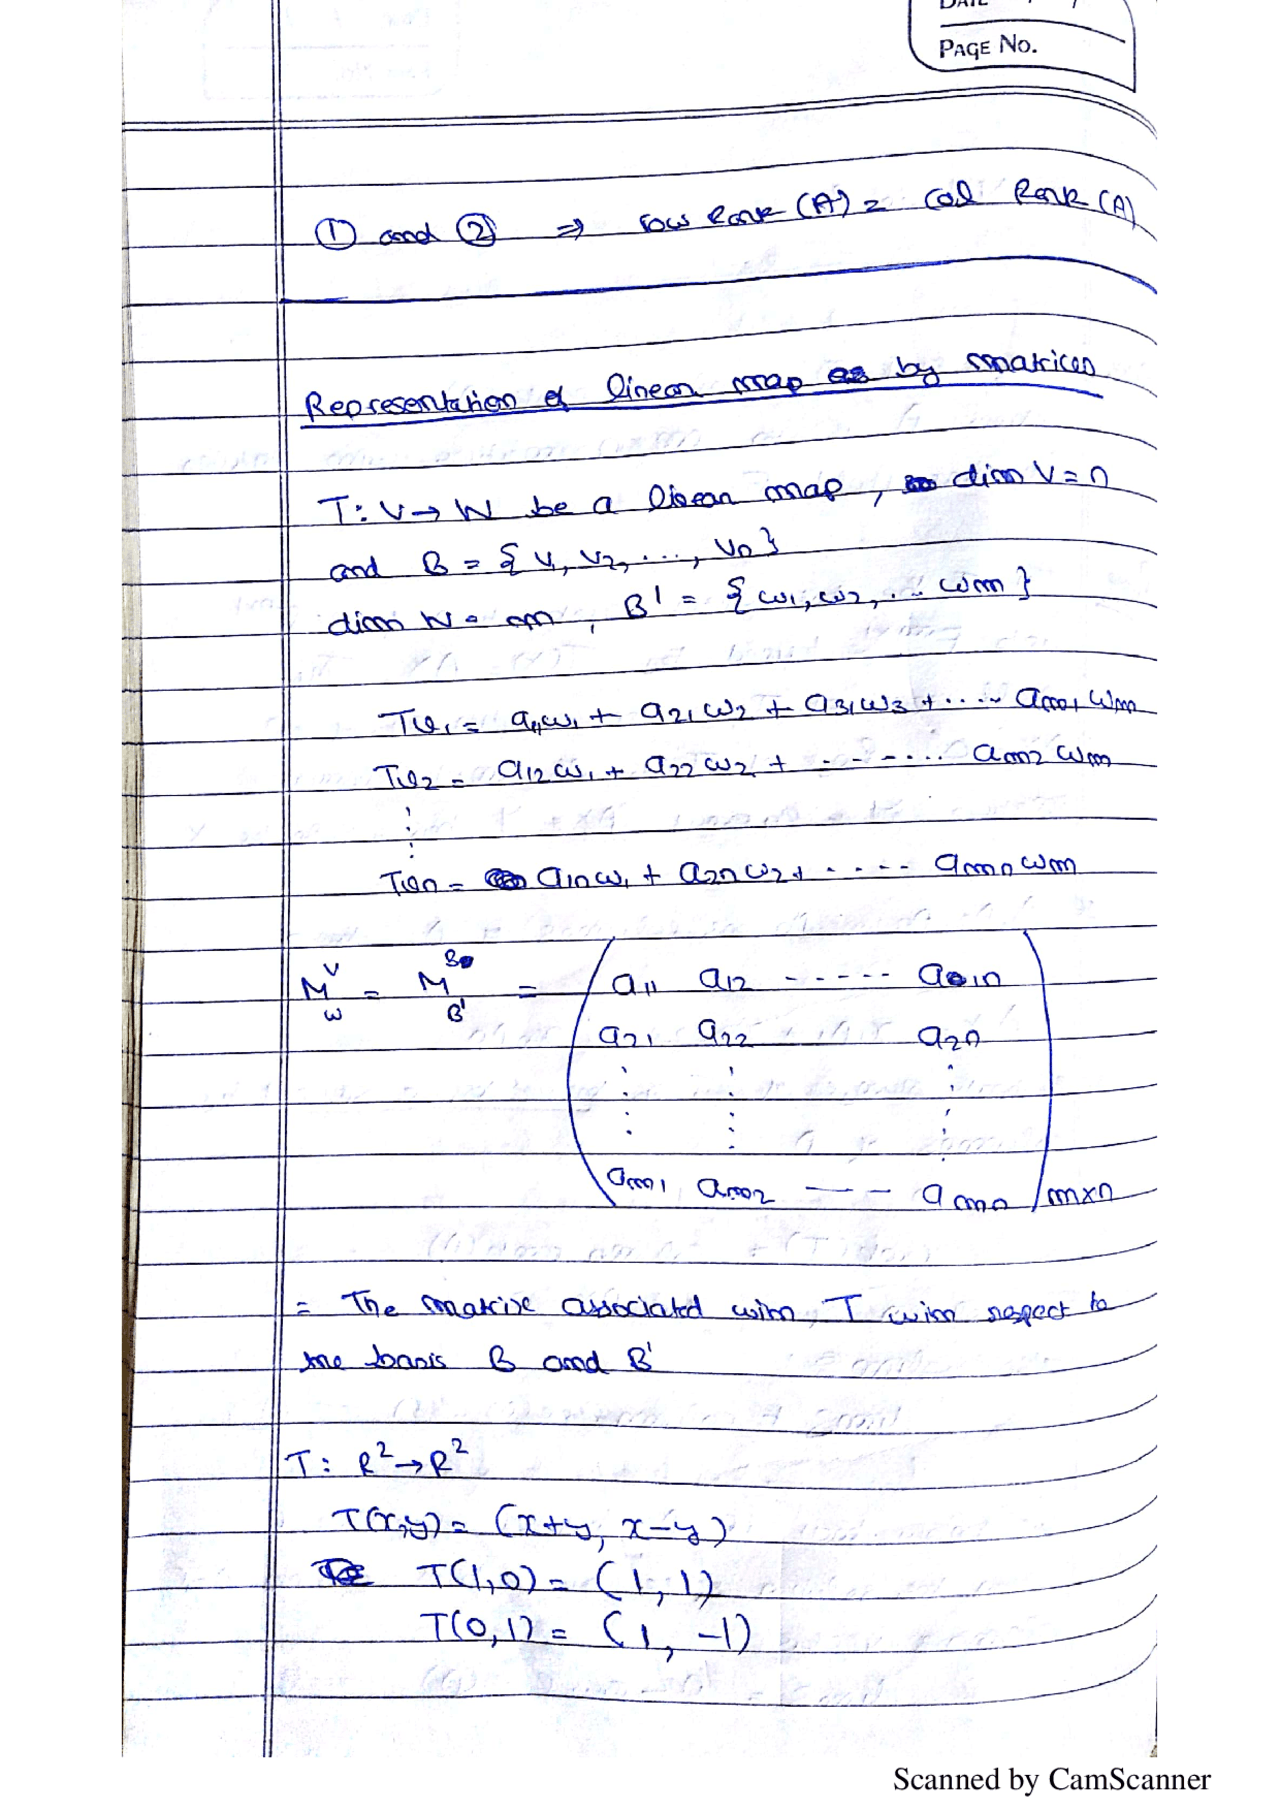 DATE / /
PAGE No.
① and ② ⇒ row Rank (A) = Col Rank (A)
Representation of linear map by matrices
T: V → W be a linear map, dim V = n
and B = {v1, v2, ..., vn}
dim W = m, B' = {w1, w2, ... wm}
Tv1 = a11w1 + a21w2 + a31w3 + .... am1wm
Tv2 = a12w1 + a22w2 + ------ am2wm
⋮
Tvn = a1nw1 + a2nw2 + ..... amnwm
M^V_W = M^B_B' = ( a11 a12 ----- a1n
a21 a22 a2n
⋮ ⋮ ⋮
am1 am2 --- amn ) m×n
= The matrix associated with, T with respect to
the basis B and B'
T: R² → R²
T(x,y) = (x+y, x-y)
T(1,0) = (1, 1)
T(0,1) = (1, -1)
Scanned by CamScanner